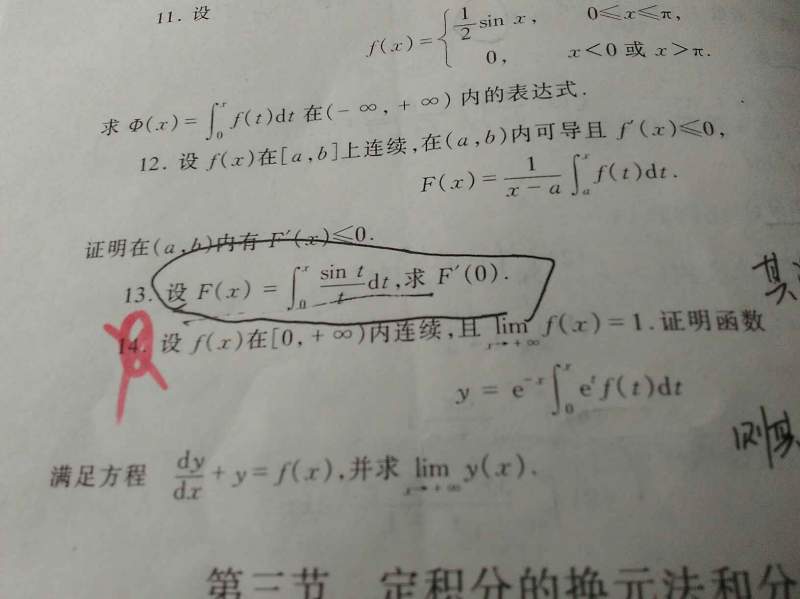 11. 设
f(x)={ 1/2 sin x, 0≤x≤π,
0, x<0 或 x>π.
求 Φ(x)=∫₀ˣ f(t)dt 在(-∞,+∞)内的表达式.
12. 设 f(x)在[a,b]上连续,在(a,b)内可导且 f′(x)≤0,
F(x)=1/(x-a) ∫ₐˣ f(t)dt.
证明在(a,b)内有 F′(x)≤0.
13. 设 F(x)=∫₀ˣ (sin t)/t dt,求 F′(0).
14. 设 f(x)在[0,+∞)内连续,且 lim x→+∞ f(x)=1.证明函数
y=e⁻ˣ∫₀ˣ eᵗf(t)dt
满足方程 dy/dx+y=f(x),并求 lim x→+∞ y(x).
第三节 定积分的换元法和分